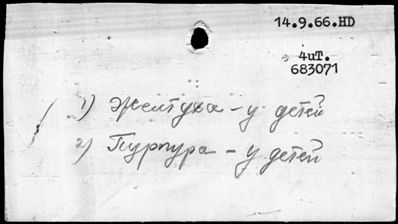 14.9.66.HD
4uT.
683071
1) Желтуха - у детей
2) Пурпура - у детей